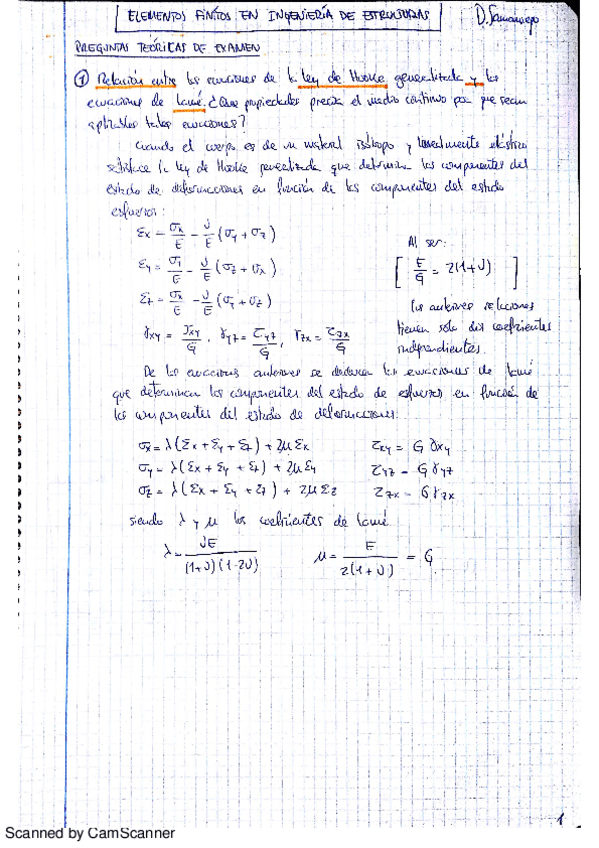 ELEMENTOS FINITOS EN INGENIERÍA DE ESTRUCTURAS
D. Samaniego
PREGUNTAS TEÓRICAS DE EXAMEN
① Relación entre las ecuaciones de la ley de Hooke generalizada y las
ecuaciones de Lamé. ¿Que propiedades precisa el medio continuo para que sean
aplicables tales ecuaciones?
Cuando el cuerpo es de un material isótropo y linealmente elástico
satisface la ley de Hooke generalizada que determina las componentes del
estado de deformaciones en función de las componentes del estado
esfuerzos:
εx = σx/E - ν/E (σy + σz)
Al ser:
εy = σy/E - ν/E (σz + σx)
[ E/G = 2(1+ν) ]
εz = σx/E - ν/E (σy + σz)
las anteriores relaciones
tienen solo dos coeficientes
γxy = τxy/G , γyz = τyz/G , γzx = τzx/G
independientes.
De las ecuaciones anteriores se deducen las ecuaciones de Lamé
que determinan las componentes del estado de esfuerzos en función de
las componentes del estado de deformaciones:
σx = λ(εx + εy + εz) + 2μεx
τxy = G γxy
σy = λ(εx + εy + εz) + 2μεy
τyz = G γyz
σz = λ(εx + εy + εz) + 2μεz
τzx = G γzx
siendo λ y μ los coeficientes de Lamé
λ = νE/(1+ν)(1-2ν)
μ = E/2(1+ν) = G
1
Scanned by CamScanner